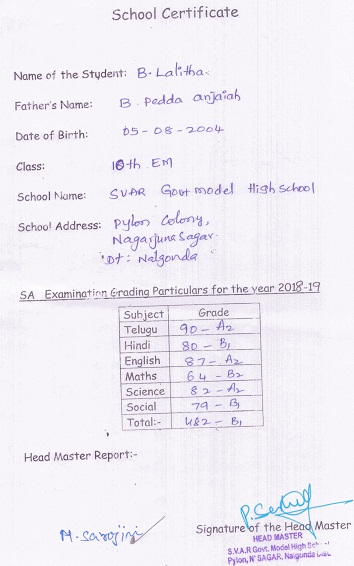 School Certificate
Name of the Student: B. Lalitha.
Father's Name: B. Pedda anjaiah
Date of Birth: 05-08-2004
Class: 10th EM
School Name: SVAR Govt model High School
School Address: Pylon Colony,
Nagarjuna Sagar.
Dt: Nalgonda
SA Examination Grading Particulars for the year 2018-19
Subject Grade
Telugu 90 - A2
Hindi 80 - B1
English 87 - A2
Maths 64 - B2
Science 82 - A2
Social 79 - B1
Total:- 482 - B1
Head Master Report:-
M. Sarojini
Signature of the Head Master
HEAD MASTER
S.V.A.R Govt. Model High School
Pylon, N' SAGAR, Nalgonda Dist.